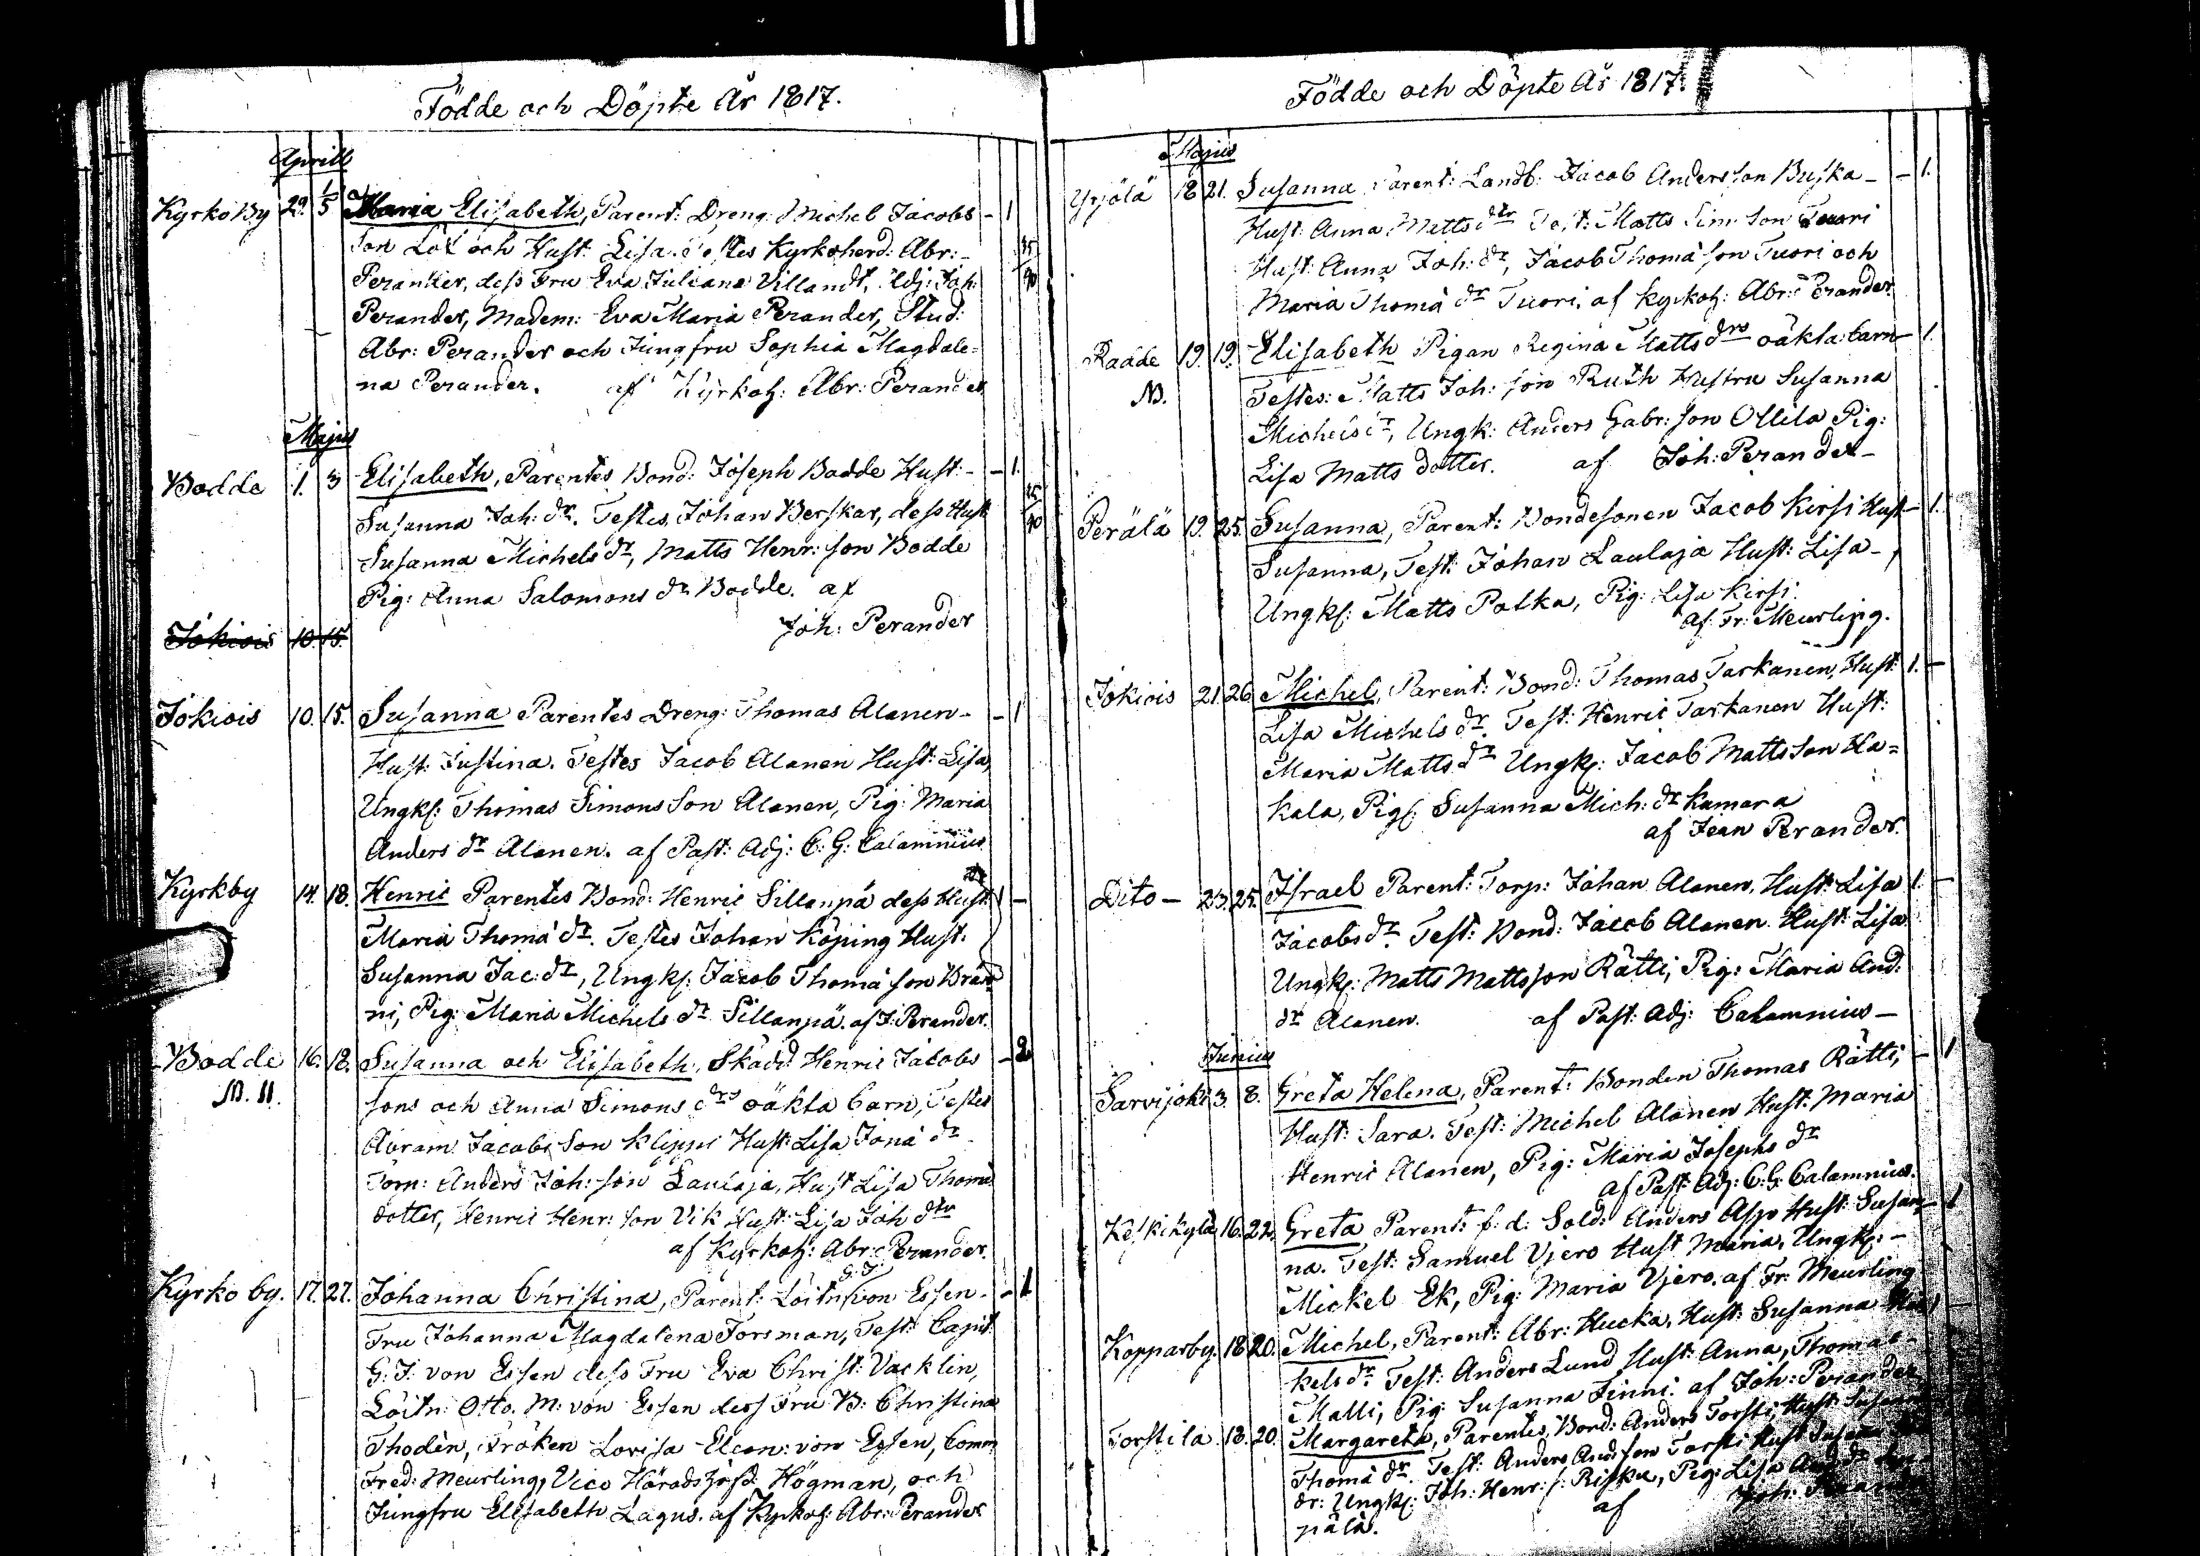 Födde och Döpte År 1817.
Aprill
Kyrko By 29. 1/5 Maria Elisabeth, Parent: Dreng: Michel Jacobs - 1
son Löf och Hust: Lisa. Testes Kyrkoherd: Abr: -
Perander, dess Fru Eva Juliana Villandt, Adj: Joh:
Perander, Madem: Eva Maria Perander, Stud:
Abr: Perander och Jungfru Sophia Magdale=
na Perander. af Kyrkoh: Abr: Perander
Majus
Bodde 1. 3 Elisabeth, Parentes Bond: Joseph Bodde Hust: - - 1.
Susanna Joh: dr. Testes, Johan Berskar, dess Hust
Susanna Michels dr, Matts Henr: son Bodde
Pig: Anna Salomons dr Bodde. af
Joh: Perander
Jokiois 10. 15.
Jokiois 10. 15. Susanna Parentes Dreng: Thomas Alanen - - 1
Hust: Justina. Testes Jacob Alanen Hust: Lisa,
Ungk: Thomas Simons Son Alanen, Pig: Maria
Anders dr Alanen. af Past: Adj: C: G: Calamnius
Kyrkby 14. 18. Henric Parentes Bond: Henric Sillanpä dess Hust: 1 -
Maria Thomä dr. Testes Johan Köping Hust:
Susanna Jac: dr, Ungk: Jacob Thomä son Brän
ni, Pig: Maria Michels dr Sillanpä. af J: Perander.
Bodde 16. 18. Susanna och Elisabeth, Skädd Henric Jacobs - 2
NB. II. sons och Anna Simons drs oäkta barn, Testes
Abram Jacobs Son Klippi Hust: Lisa Jonä dr
Torn: Anders Joh: son Laulaja, Hust Lisa Thomä
dotter, Henric Henr: son Vik Hust: Lisa Joh dtr
af Kyrkoh: Abr: Perander.
Kyrko by. 17. 27. Johanna Christina, Parent: Löitn: G. J. von Essen - - 1
Fru Johanna Magdalena Forsman, Test: Capit
G: J: von Essen dess Fru Eva Christ: Vacklin,
Löitn: Otto. M: von Essen dess Fru B: Christina
Thodèn, Fröken Lovisa Eleon: von Essen, Comm
Fred: Meurling, Vice Häradshöfd: Högman, och
Jungfru Elisabeth Lagus. af Kyrkoh: Abr: Perander
Födde och Döpte År 1817.
Majus
Yrjölä 18 21. Susanna Parent: Landb: Jacob Andersson Buska - - 1.
Hust: Anna Matts dtr Test: Matts Sim: Son Tuori
Hust: Anna Joh: dr, Jacob Thomä son Tuori och
Maria Thomä dr Tuori. af Kyrkoh: Abr: Perander
Radde 19. 19. Elisabeth Pigan Regina Matts drs oäkta barn - 1.
NB. Testes: Matts Joh: son Ruth Hustru Susanna
Michels dr, Ungk: Anders Gabr: son Ollila Pig:
Lisa Matts dotter. af Joh: Perander -
Perälä 19. 25. Susanna, Parent: Bondesonen Jacob Kirsi Hust - 1.
Susanna, Test: Johan Laulaja Hust: Lisa -,
Ungk: Matts Polka, Pig: Lisa Kirsi.
af Fr: Meurling.
Jokiois 21. 26 Michel, Parent: Bond: Thomas Tarkanen, Hust: 1. -
Lisa Michels dr. Test: Henric Tarkanen Hust:
Maria Matts dr Ungk: Jacob Matts son Ha=
kala, Pig: Susanna Mich: dr Kamara
af Jean Perander.
Dito - 23. 25. Israel Parent: Torp: Johan Alanen, Hust: Lisa 1. -
Jacobs dr. Test: Bond: Jacob Alanen Hust: Lisa.
Ungk: Matts Mattsson Rätti, Pig: Maria And:
dr Alanen. af Past: Adj: Calamnius -
Junius
Sarvijoki 3. 8. Greta Helena, Parent: Bonden Thomas Rätti, - 1
Hust: Sara. Test: Michel Alanen Hust: Maria
Henric Alanen, Pig: Maria Josephs dr
af Past: Adj: C: G: Calamnius.
Keskikylä 16. 22. Greta Parent: f: d: Sold: Anders Aspo Hust: Susan - 1
na. Test: Samuel Vjero Hust Maria, Ungk: -
Mickel Ek, Pig: Maria Vjero. af Fr: Meurling
Kopparby 18 20. Michel, Parent: Abr: Hucka, Hust: Susanna Mic 1 -
kels dr. Test: Anders Lund Hust: Anna, Thomas -
Malli, Pig: Susanna Finni. af Joh: Perander
Torstila. 18. 20. Margareta, Parentes, Bond: Anders Torsti, Hust: Susanna
Thomä dr. Test: Anders And: son Torsti Hust Susanna
dr: Ungk: Joh: Henr: s: Riska, Pig: Lisa And: dr
pälä. af Joh: Perander